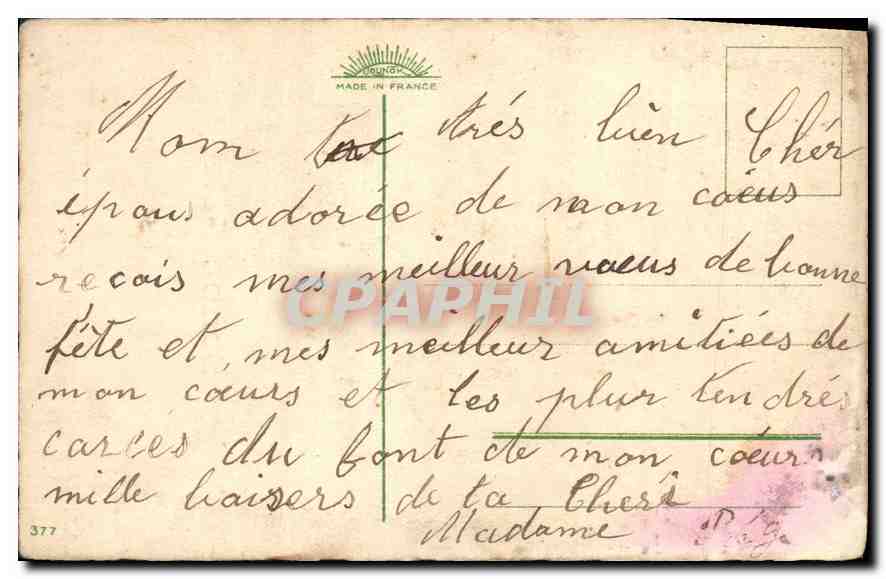 MADE IN FRANCE
Mom très bien Chér
épous adorée de mon cœurs
reçois mes meilleur vœus de bonne
fête et mes meilleur amitiées de
mon cœurs et les plur tendrés
carces du font de mon cœurs
mille baisers de ta Cheri
Madame
377
CPAPHIL